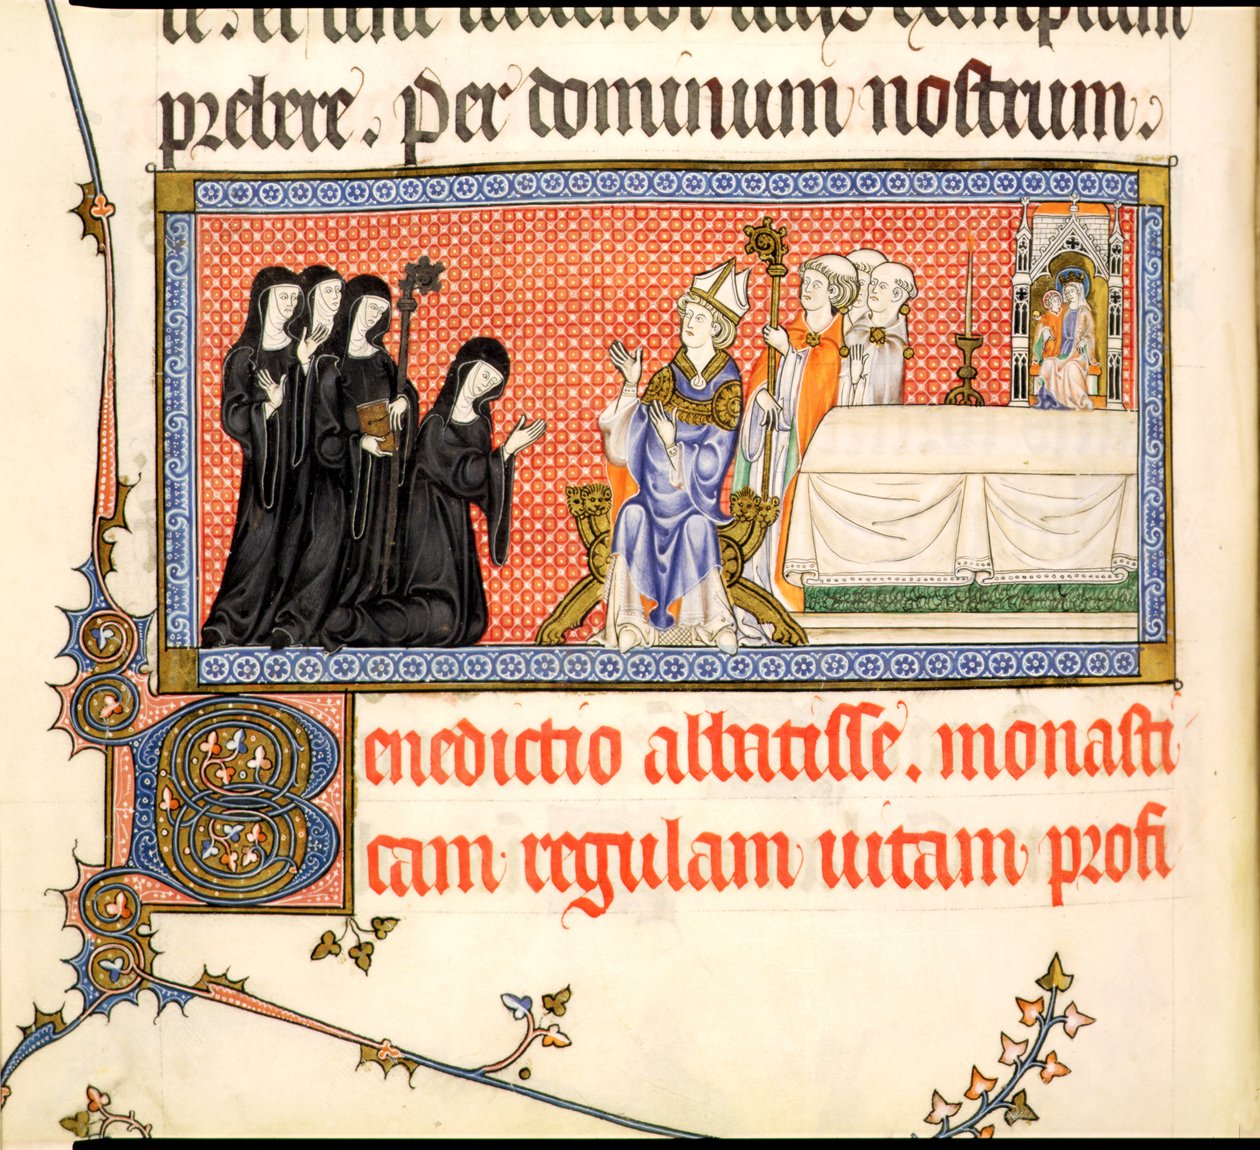 prebere. Per dominum nostrum.
Benedictio abbatisse. monasti
cam regulam uitam profi